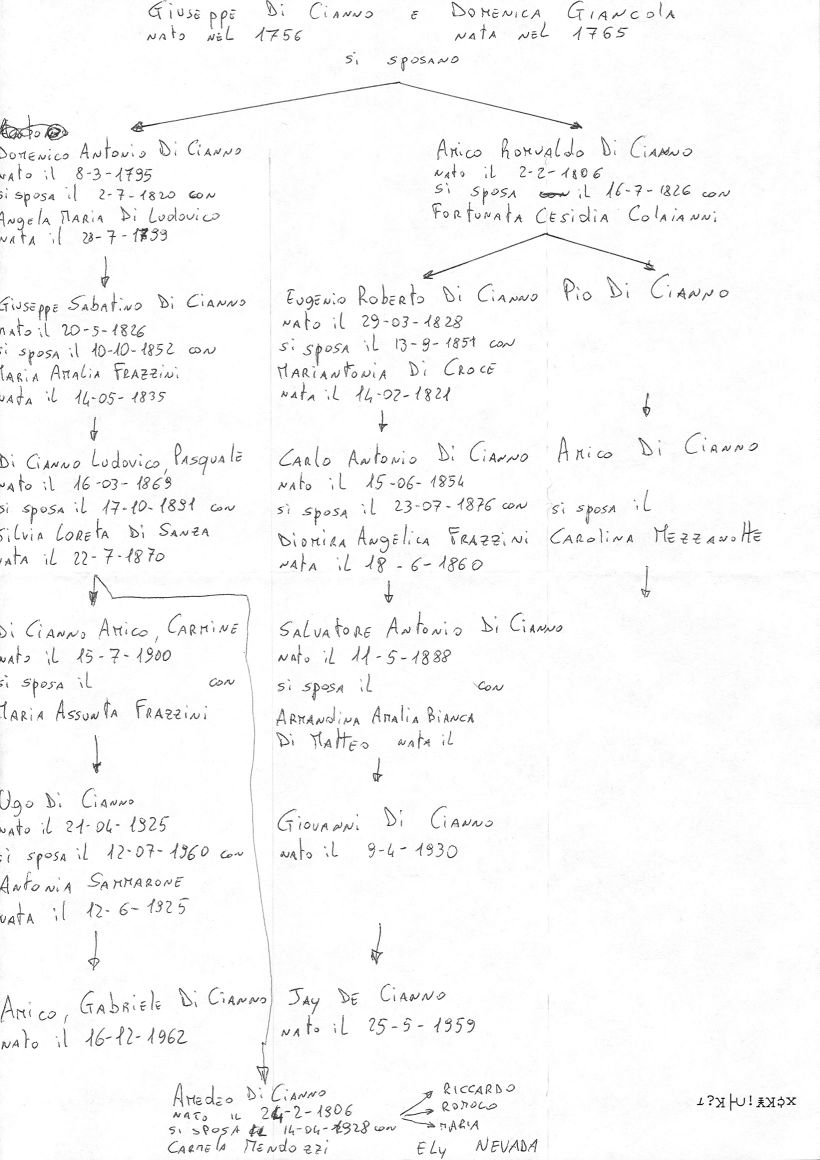 Giuseppe Di Cianno e Domenica Giancola
nato nel 1756 nata nel 1765
si sposano
Domenico Antonio Di Cianno
nato il 8-3-1795
si sposa il 2-7-1820 con
Angela Maria Di Ludovico
nata il 28-7-1799
Amico Romualdo Di Cianno
nato il 2-2-1806
si sposa il 16-7-1826 con
Fortunata Cesidia Colaianni
Giuseppe Sabatino Di Cianno
nato il 20-5-1826
si sposa il 10-10-1852 con
Maria Amalia Frazzini
nata il 14-05-1835
Eugenio Roberto Di Cianno
nato il 29-03-1828
si sposa il 13-9-1851 con
Mariantonia Di Croce
nata il 14-02-1821
Pio Di Cianno
Di Cianno Ludovico, Pasquale
nato il 16-03-1869
si sposa il 17-10-1891 con
Silvia Loreta Di Sanza
nata il 22-7-1870
Carlo Antonio Di Cianno
nato il 15-06-1854
si sposa il 23-07-1876 con
Diomira Angelica Frazzini
nata il 18-6-1860
Amico Di Cianno
si sposa il
Carolina Mezzanotte
Di Cianno Amico, Carmine
nato il 15-7-1900
si sposa il con
Maria Assunta Frazzini
Salvatore Antonio Di Cianno
nato il 11-5-1888
si sposa il con
Armandina Amalia Bianca
Di Matteo nata il
Ugo Di Cianno
nato il 21-04-1925
si sposa il 12-07-1960 con
Antonia Sammarone
nata il 12-6-1925
Giovanni Di Cianno
nato il 9-4-1930
Amico, Gabriele Di Cianno
nato il 16-12-1962
Jay De Cianno
nato il 25-5-1959
Amedeo Di Cianno
nato il 24-2-1906
si sposa il 14-04-1928 con
Carmela Mendozzi
RICCARDO
ROMOLO
MARIA
Ely NEVADA